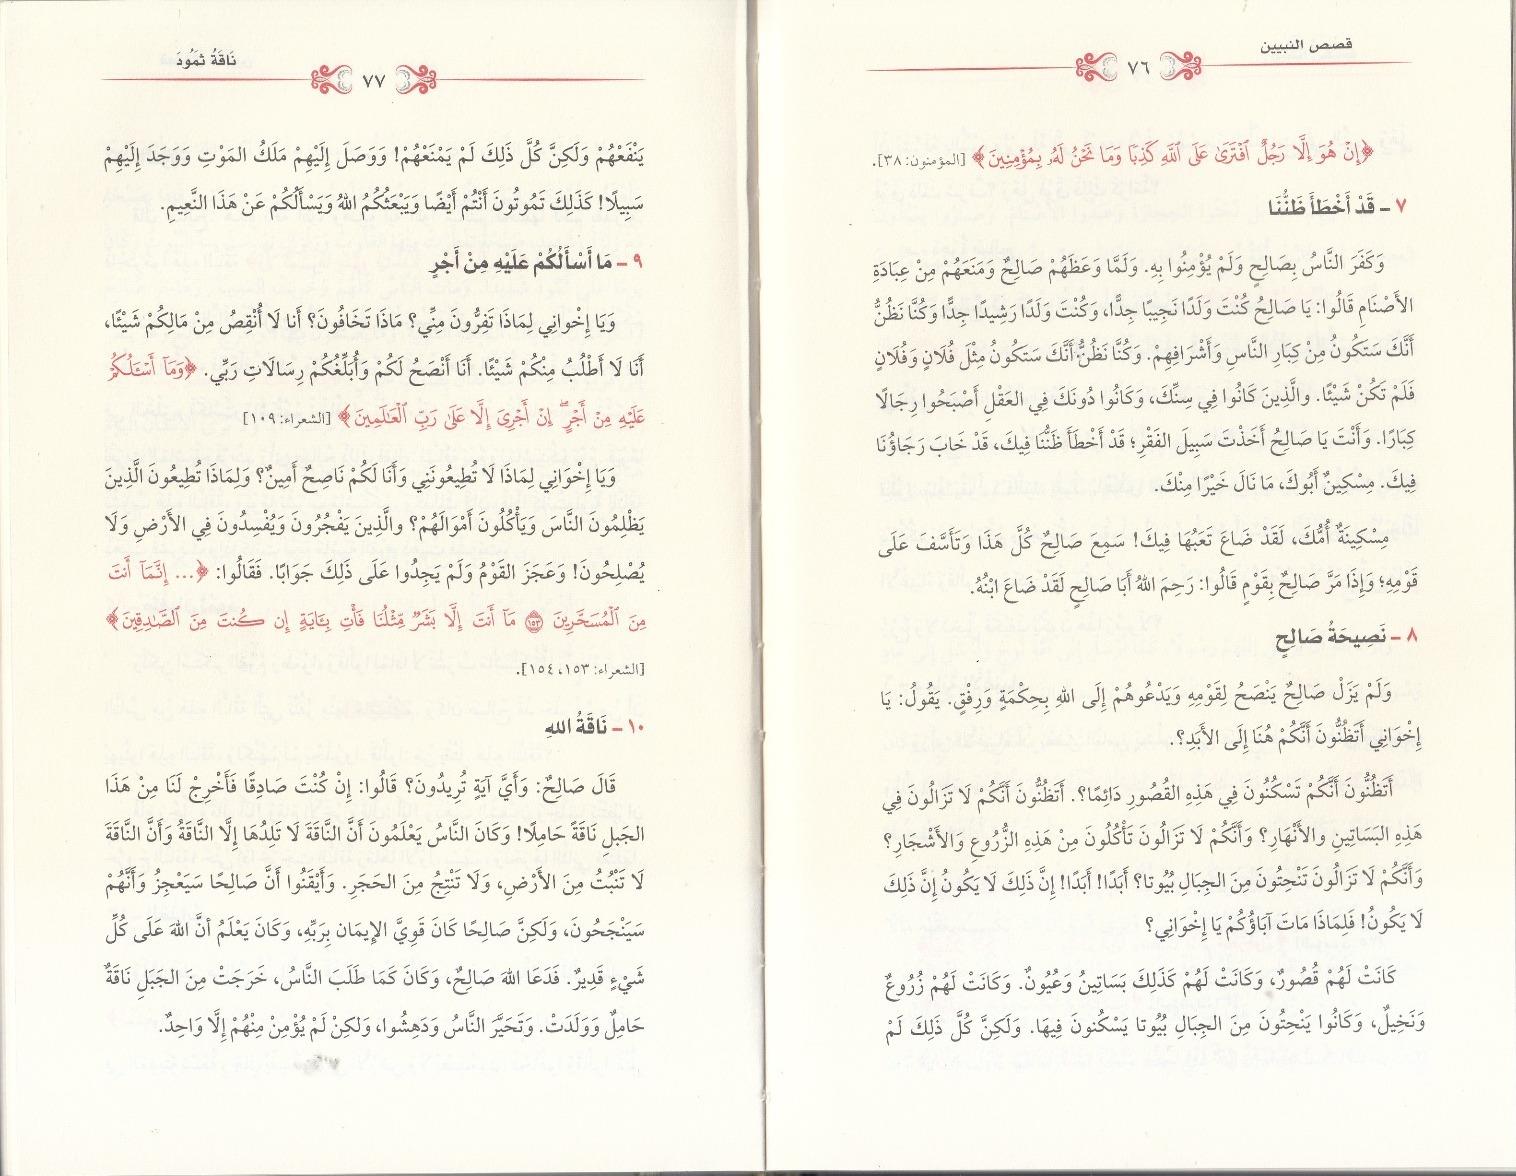 قصص النبيين
٧٦
﴿إِنْ هُوَ إِلَّا رَجُلٌ ٱفْتَرَىٰ عَلَى ٱللَّهِ كَذِبًا وَمَا نَحْنُ لَهُۥ بِمُؤْمِنِينَ﴾ [المؤمنون: ٣٨].
٧ - قَدْ أَخْطَأَ ظَنُّنَا
وَكَفَرَ النَّاسُ بِصَالِحٍ وَلَمْ يُؤْمِنُوا بِهِ. وَلَمَّا وَعَظَهُمْ صَالِحٌ وَمَنَعَهُمْ مِنْ عِبَادَةِ
الأَصْنَامِ قَالُوا: يَا صَالِحُ كُنْتَ وَلَدًا نَجِيبًا جِدًّا، وَكُنْتَ وَلَدًا رَشِيدًا جِدًّا وَكُنَّا نَظُنُّ
أَنَّكَ سَتَكُونُ مِنْ كِبَارِ النَّاسِ وَأَشْرَافِهِمْ. وَكُنَّا نَظُنُّ أَنَّكَ سَتَكُونُ مِثْلَ فُلَانٍ وَفُلَانٍ
فَلَمْ تَكُنْ شَيْئًا. والَّذِينَ كَانُوا فِي سِنِّكَ، وَكَانُوا دُونَكَ فِي العَقْلِ أَصْبَحُوا رِجَالًا
كِبَارًا. وَأَنْتَ يَا صَالِحُ أَخَذْتَ سَبِيلَ الفَقْرِ؛ قَدْ أَخْطَأَ ظَنُّنَا فِيكَ، قَدْ خَابَ رَجَاؤُنَا
فِيكَ. مِسْكِينٌ أَبُوكَ، مَا نَالَ خَيْرًا مِنْكَ.
مِسْكِينَةٌ أُمُّكَ، لَقَدْ ضَاعَ تَعَبُهَا فِيكَ! سَمِعَ صَالِحٌ كُلَّ هَذَا وَتَأَسَّفَ عَلَى
قَوْمِهِ؛ وَإِذَا مَرَّ صَالِحٌ بِقَوْمٍ قَالُوا: رَحِمَ اللهُ أَبَا صَالِحٍ لَقَدْ ضَاعَ ابْنُهُ.
٨ - نَصِيحَةُ صَالِحٍ
وَلَمْ يَزَلْ صَالِحٌ يَنْصَحُ لِقَوْمِهِ وَيَدْعُوهُمْ إِلَى اللهِ بِحِكْمَةٍ وَرِفْقٍ. يَقُولُ: يَا
إِخْوَانِي أَتَظُنُّونَ أَنَّكُمْ هُنَا إِلَى الأَبَدِ؟.
أَتَظُنُّونَ أَنَّكُمْ تَسْكُنُونَ فِي هَذِهِ القُصُورِ دَائِمًا؟. أَتَظُنُّونَ أَنَّكُمْ لَا تَزَالُونَ فِي
هَذِهِ البَسَاتِينِ والأَنْهَارِ؟ وَأَنَّكُمْ لَا تَزَالُونَ تَأْكُلُونَ مِنْ هَذِهِ الزُّرُوعِ وَالأَشْجَارِ؟
وَأَنَّكُمْ لَا تَزَالُونَ تَنْحِتُونَ مِنَ الجِبَالِ بُيُوتا؟ أَبَدًا! أَبَدًا! إِنَّ ذَلِكَ لَا يَكُونُ إِنَّ ذَلِكَ
لَا يَكُونُ! فَلِمَاذَا مَاتَ آبَاؤُكُمْ يَا إِخْوَانِي؟
كَانَتْ لَهُمْ قُصُورٌ، وَكَانَتْ لَهُمْ كَذَلِكَ بَسَاتِينُ وَعُيُونٌ. وَكَانَتْ لَهُمْ زُرُوعٌ
وَنَخِيلٌ، وَكَانُوا يَنْحِتُونَ مِنَ الجِبَالِ بُيُوتا يَسْكُنونَ فِيهَا. وَلَكِنَّ كُلَّ ذَلِكَ لَمْ
نَاقَةُ ثَمُودَ
٧٧
يَنْفَعْهُمْ وَلَكِنَّ كُلَّ ذَلِكَ لَمْ يَمْنَعْهُمْ! وَوَصَلَ إِلَيْهِمْ مَلَكُ المَوْتِ وَوَجَدَ إِلَيْهِمْ
سَبِيلًا! كَذَلِكَ تَمُوتُونَ أَنْتُمْ أَيْضًا وَيَبْعَثُكُمُ اللهُ وَيَسْأَلُكُمْ عَنْ هَذَا النَّعِيمِ.
٩ - مَا أَسْأَلُكُمْ عَلَيْهِ مِنْ أَجْرٍ
وَيَا إِخْوَانِي لِمَاذَا تَفِرُّونَ مِنِّي؟ مَاذَا تَخَافُونَ؟ أَنا لَا أُنْقِصُ مِنْ مَالِكُمْ شَيْئًا،
أَنَا لَا أَطْلُبُ مِنْكُمْ شَيْئًا. أَنَا أَنْصَحُ لَكُمْ وَأُبَلِّغُكُمْ رِسَالَاتِ رَبِّي. ﴿وَمَآ أَسْـَٔلُكُمْ
عَلَيْهِ مِنْ أَجْرٍ ۖ إِنْ أَجْرِىَ إِلَّا عَلَىٰ رَبِّ ٱلْعَـٰلَمِينَ﴾ [الشعراء: ١٠٩]
وَيَا إِخْوَانِي لِمَاذَا لَا تُطِيعُونَنِي وَأَنَا لَكُمْ نَاصِحٌ أَمِينٌ؟ وَلِمَاذَا تُطِيعُونَ الَّذِينَ
يَظْلِمُونَ النَّاسَ وَيَأْكُلُونَ أَمْوَالَهُمْ؟ والَّذِينَ يَفْجُرُونَ وَيُفْسِدُونَ فِي الأَرْضِ وَلَا
يُصْلِحُونَ! وَعَجَزَ القَوْمُ وَلَمْ يَجِدُوا عَلَى ذَلِكَ جَوَابًا. فَقَالُوا: ﴿... إِنَّمَآ أَنتَ
مِنَ ٱلْمُسَحَّرِينَ ١٥٣ مَآ أَنتَ إِلَّا بَشَرٌ مِّثْلُنَا فَأْتِ بِـَٔايَةٍ إِن كُنتَ مِنَ ٱلصَّـٰدِقِينَ﴾
[الشعراء: ١٥٣، ١٥٤].
١٠ - نَاقَةُ اللهِ
قَالَ صَالِحٌ: وَأَيَّ آيَةٍ تُرِيدُونَ؟ قَالُوا: إِنْ كُنْتَ صَادِقًا فَأَخْرِجْ لَنَا مِنْ هَذَا
الجَبَلِ نَاقَةً حَامِلًا! وَكَانَ النَّاسُ يَعْلَمُونَ أَنَّ النَّاقَةَ لَا تَلِدُهَا إِلَّا النَّاقَةُ وَأَنَّ النَّاقَةَ
لَا تَنْبُتُ مِنَ الأَرْضِ، وَلَا تَنْتِجُ مِنَ الحَجَرِ. وَأَيْقَنُوا أَنَّ صَالِحًا سَيَعْجِزُ وَأَنَّهُمْ
سَيَنْجَحُونَ، وَلَكِنَّ صَالِحًا كَانَ قَوِيَّ الإِيمَانِ بِرَبِّهِ، وَكَانَ يَعْلَمُ أنَّ اللهَ عَلَى كُلِّ
شَيْءٍ قَدِيرٌ. فَدَعَا اللهَ صَالِحٌ، وَكَانَ كَمَا طَلَبَ النَّاسُ، خَرَجَتْ مِنَ الجَبَلِ نَاقَةٌ
حَامِلٌ وَوَلَدَتْ. وَتَحَيَّرَ النَّاسُ وَدَهِشُوا، وَلَكِنْ لَمْ يُؤْمِنْ مِنْهُمْ إِلَّا وَاحِدٌ.